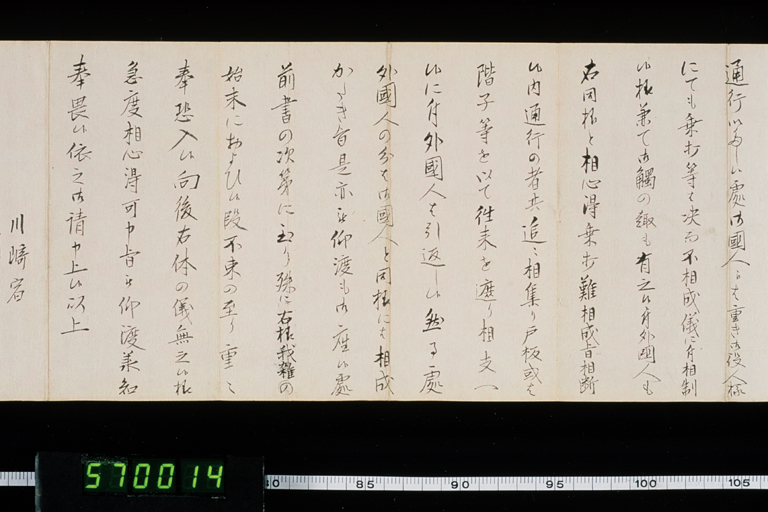 通行いたし候處御國人にても重き御役人様
にても乗打等は決而不相成儀に付相制
候様兼て御觸の趣も有之候付外國人も
右同様と相心得乗打難相成旨相断
候内通行の者共追々相集り戸板或は
階子等を以て往来を遮り相支へ
候に付外國人は引返し候然る處
外國人の分は御國人と同様には相成
かたき旨是亦被仰渡も御座候處
前書の次第に至り殊に右様我雑の
始末におよひ候段不束の至り重々
奉恐入候向後右体の儀無之候様
急度相心得可申旨被仰渡承知
奉畏候依之御請申上候以上
川崎宿
570014
40 85 90 95 100 105